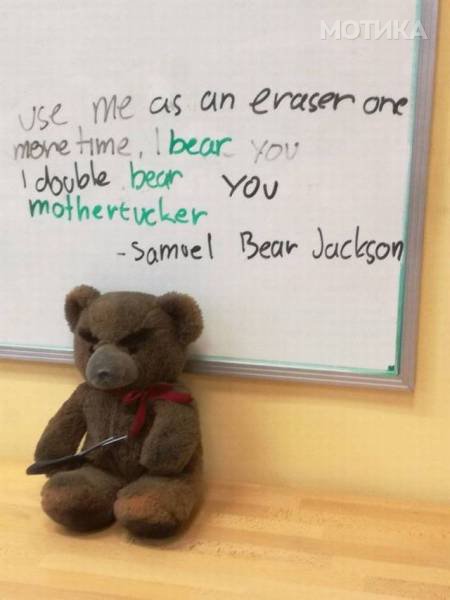 МОТИКА
use me as an eraser one
more time, I bear you
I double bear you
mothertucker
-Samuel Bear Jackson